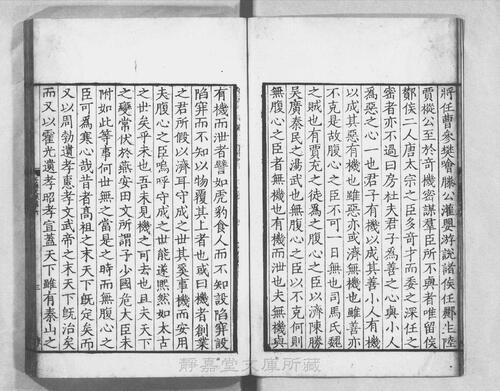 將任曹參樊噲滕公灌嬰游說諸侯任酈生陸
賈樅公至於奇機密謀羣臣所不與者唯留侯
酇侯二人唐太宗之臣多奇才而委之深任之
密者亦不過曰房杜夫君子為善之心與小人
為惡之心一也君子有機以成其善小人有機
以成其惡有機也雖惡亦或濟無機也雖善亦
不克是故腹心之臣不可一日無也司馬氏魏
之賊也有賈充之徒為之腹心之臣以濟陳勝
吳廣秦民之湯武也無腹心之臣以不克何則
無腹心之臣者無機也有機而泄也夫無機與
有機而泄者譬如虎豹食人而不知設陷穽設
陷穽而不知以物覆其上者也或曰機者創業
之君所假以濟耳守成之世其奚事機而安用
夫腹心之臣嗚呼守成之世能遂熙然如太古
之世矣乎未也吾未見機之可去也且夫天下
之變常伏於燕安田文所謂子少國危大臣未
附如此等事何世無之當是之時而無腹心之
臣可為寒心哉昔者高祖之末天下既定矣而
又以周勃遺孝惠孝文武帝之末天下既治矣
而又以霍光遺孝昭孝宣蓋天下雖有泰山之
靜嘉堂文庫所藏